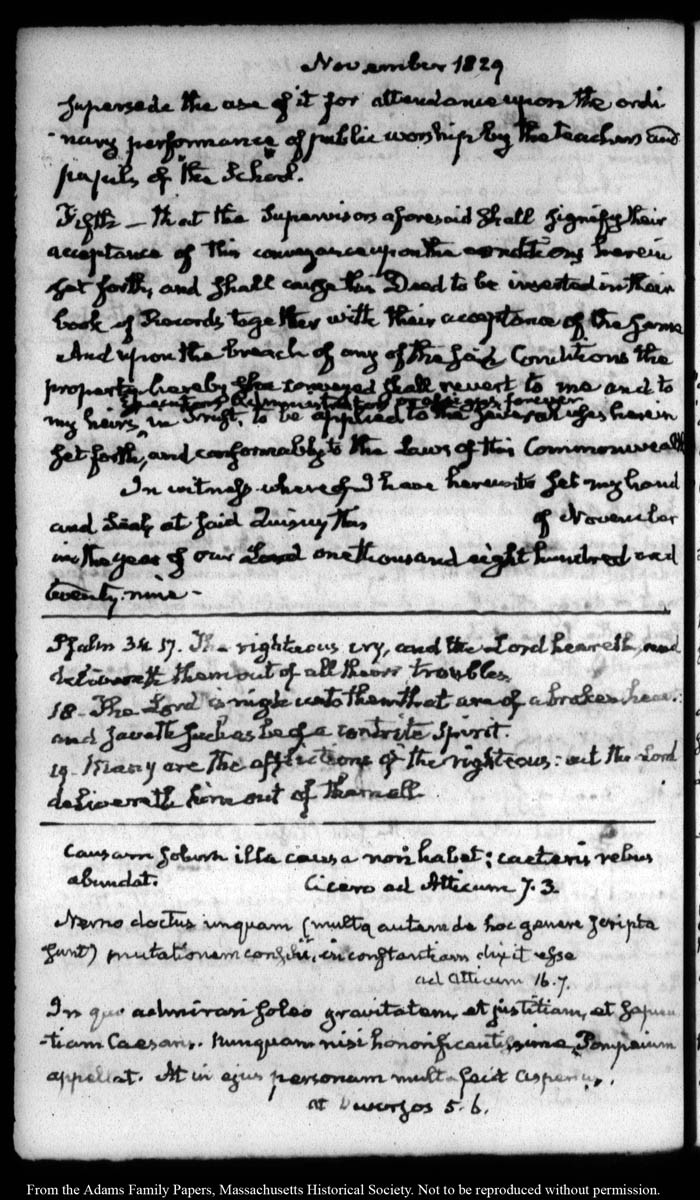 November 1829
supersede the use of it for attendance upon the ordi
-nary performance of public worship by the teachers and
pupils of the School.
Fifth — that the Supervisors aforesaid shall signify their
acceptance of this conveyance upon the conditions herein
set forth, and shall cause this Deed to be inserted in their
book of Records together with their acceptance of the same
And upon the breach of any of the said Conditions the
property hereby conveyed shall revert to me and to
executors administrators or assigns forever
my heirs, in trust, to be applied to the several uses herein
set forth, and conformably to the Laws of this Commonwealth
In witness whereof I have hereunto set my hand
and Seal, at said Quincy this of November
in the year of our Lord one thousand eight hundred and
twenty-nine -
Psalm 34. 17. The righteous cry, and the Lord heareth, and
delivereth them out of all their troubles.
18 - The Lord is nigh unto them that are of a broken heart:
and saveth such as be of a contrite spirit.
19 - Many are the afflictions of the righteous: but the Lord
delivereth him out of them all
Causam solum illa causa non habet; caeteris rebus
abundat. Cicero ad Atticum 7. 3.
Nemo doctus unquam (multa autem de hoc genere scripta
sunt) mutationem consilii, inconstantiam dixit esse
ad Atticum 16. 7.
In quo admirari soleo gravitatem, et justitiam, et sapien
-tiam Caesaris. Nunquam nisi honorificentissime Pompeium
appellat. At in ejus personam multa fecit asperius.
ad Diversos 5. 6.
From the Adams Family Papers, Massachusetts Historical Society. Not to be reproduced without permission.